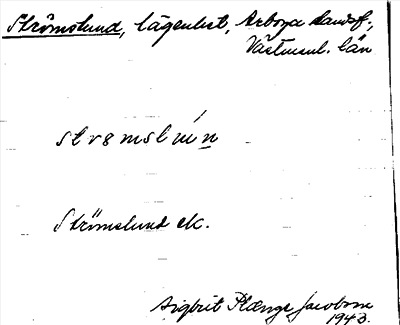 Strömslund, lägenhet, Arboga landsf.,
Västmanl. län
strømslu̇n
Strömslund ek.
Sigbrit Plænge Jacobson
1943.